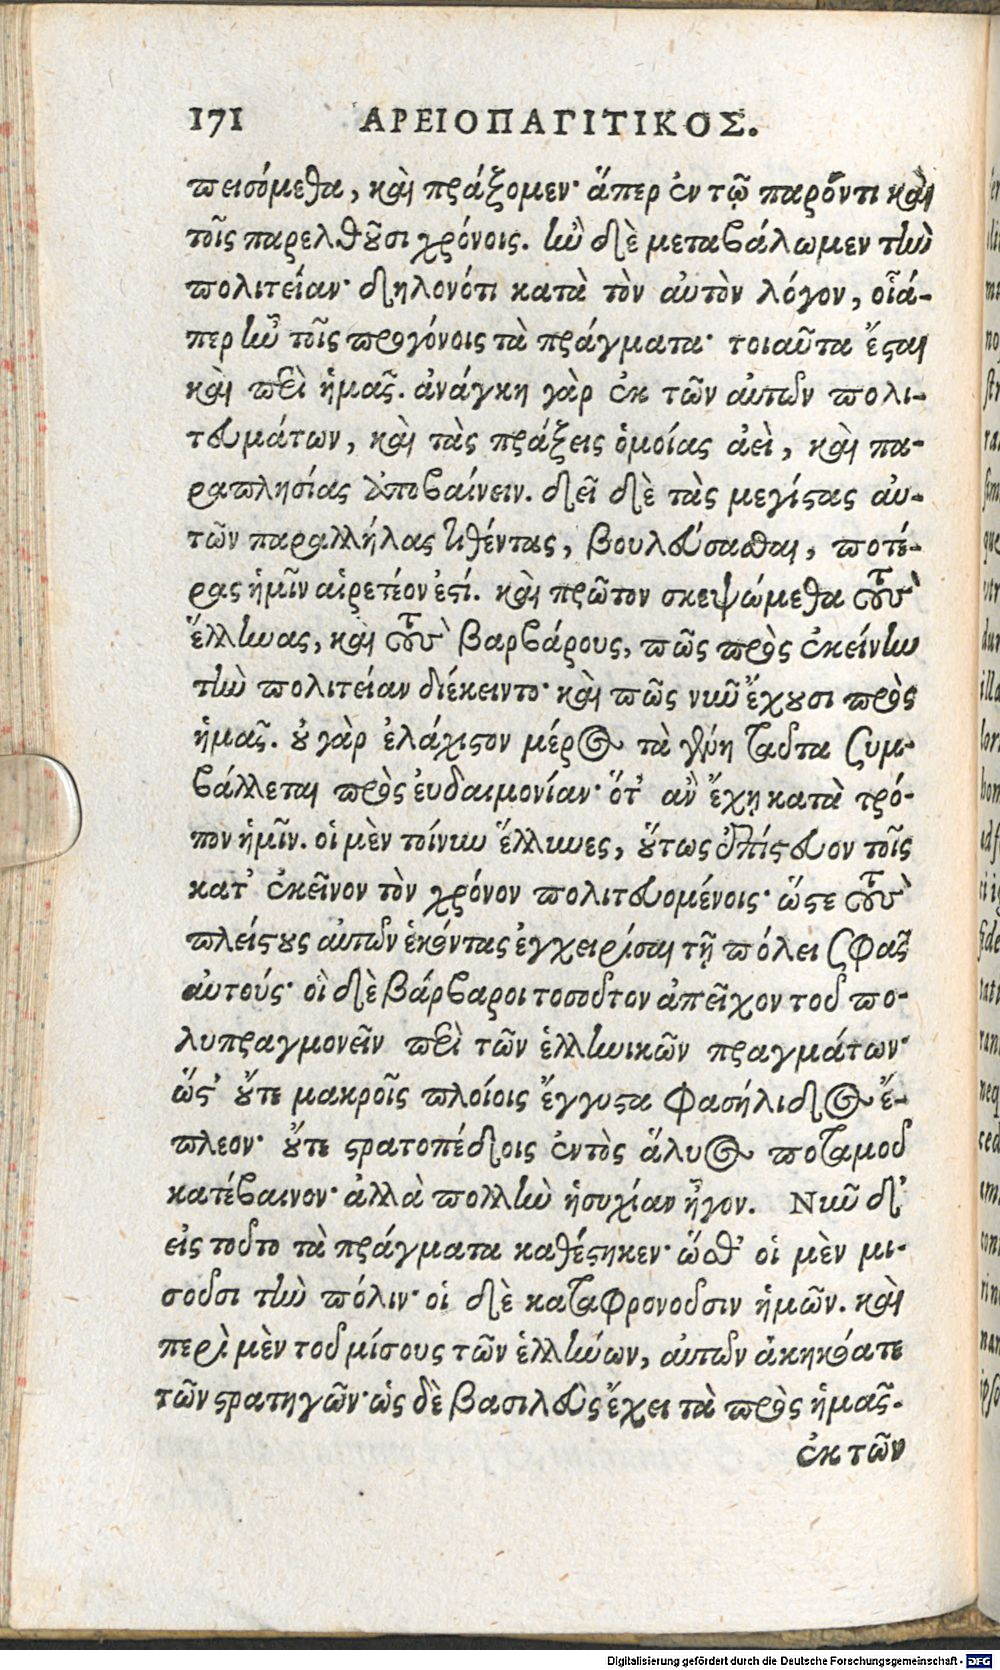 171 ΑΡΕΙΟΠΑΓΙΤΙΚΟΣ.
πεισόμεθα, καὶ πράξομεν· ἅπερ ἐν τῷ παρόντι καὶ
τοῖς παρελθοῦσι χρόνοις. ἢν δὲ μεταβάλωμεν τὴν
πολιτείαν· δηλονότι κατὰ τὸν αὐτὸν λόγον, οἷά-
περ ἦν τοῖς προγόνοις τὰ πράγματα· τοιαῦτα ἔσται
καὶ περὶ ἡμᾶς. ἀνάγκη γὰρ ἐκ τῶν αὐτῶν πολι-
τευμάτων, καὶ τὰς πράξεις ὁμοίας ἀεὶ, καὶ πα-
ραπλησίας ἀποβαίνειν. δεῖ δὲ τὰς μεγίστας αὐ-
τῶν παραλλήλας τιθέντας, βουλεύσασθαι, ποτέ-
ρας ἡμῖν αἱρετέον ἐστί. καὶ πρῶτον σκεψώμεθα τοὺς
ἕλληνας, καὶ τοὺς βαρβάρους, πῶς πρὸς ἐκείνην
τὴν πολιτείαν διέκειντο· καὶ πῶς νῦν ἔχουσι πρὸς
ἡμᾶς. οὐ γὰρ ἐλάχιστον μέρος τὰ γένη ταῦτα συμ-
βάλλεται πρὸς ἐυδαιμονίαν· ὅτ' ἂν ἔχῃ κατὰ τρό-
πον ἡμῖν. οἱ μὲν τοίνυν ἕλληνες, οὕτως ἐπίστευον τοῖς
κατ' ἐκεῖνον τὸν χρόνον πολιτευομένοις· ὥστε τοὺς
πλείστους αὐτῶν ἑκόντας ἐγχειρίσαι τῇ πόλει σφᾶς
αὐτούς· οἱ δὲ βάρβαροι τοσοῦτον ἀπεῖχον τοῦ πο-
λυπραγμονεῖν περὶ τῶν ἑλληνικῶν πραγμάτων·
ὥστ' οὔτε μακροῖς πλοίοις ἔγγυστα Φασήλιδος ἔ-
πλεον· οὔτε στρατοπέδοις ἐντὸς ἅλυος ποταμοῦ
κατέβαινον· ἀλλὰ πολλὴν ἡσυχίαν ἦγον. Νῦν δ'
εἰς τοῦτο τὰ πράγματα καθέστηκεν· ὥσθ' οἱ μὲν μι-
σοῦσι τὴν πόλιν· οἱ δὲ καταφρονοῦσιν ἡμῶν. καὶ
περὶ μὲν τοῦ μίσους τῶν ἑλλήνων, αὐτῶν ἀκηκόατε
τῶν στρατηγῶν· ὡς δὲ βασιλεὺς ἔχει τὰ πρὸς ἡμᾶς.
ἐκ τῶν
Digitalisierung gefördert durch die Deutsche Forschungsgemeinschaft - DFG